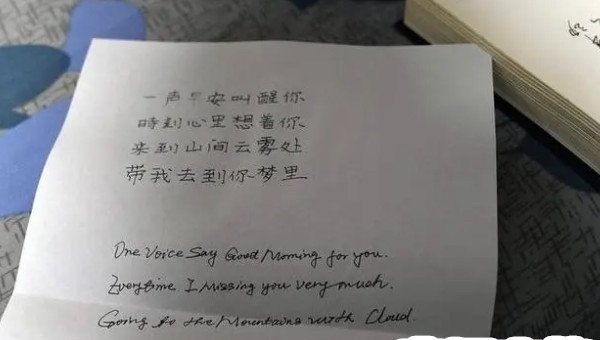 一声早安叫醒你
時刻心里想着你
来到山间云雾处
带我去到你梦里
One Voice Say Good Morning for you.
Everytime I Missing you very much.
Going to the Mountains with Cloud.